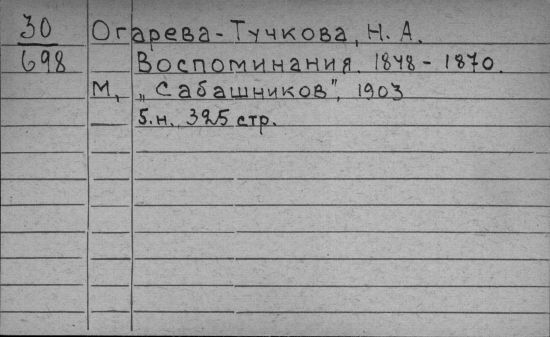 30 Огарева-Тучкова, Н. А.
698 Воспоминания. 1848 - 1870.
М, „Сабашников", 1903
б.н. 325 стр.